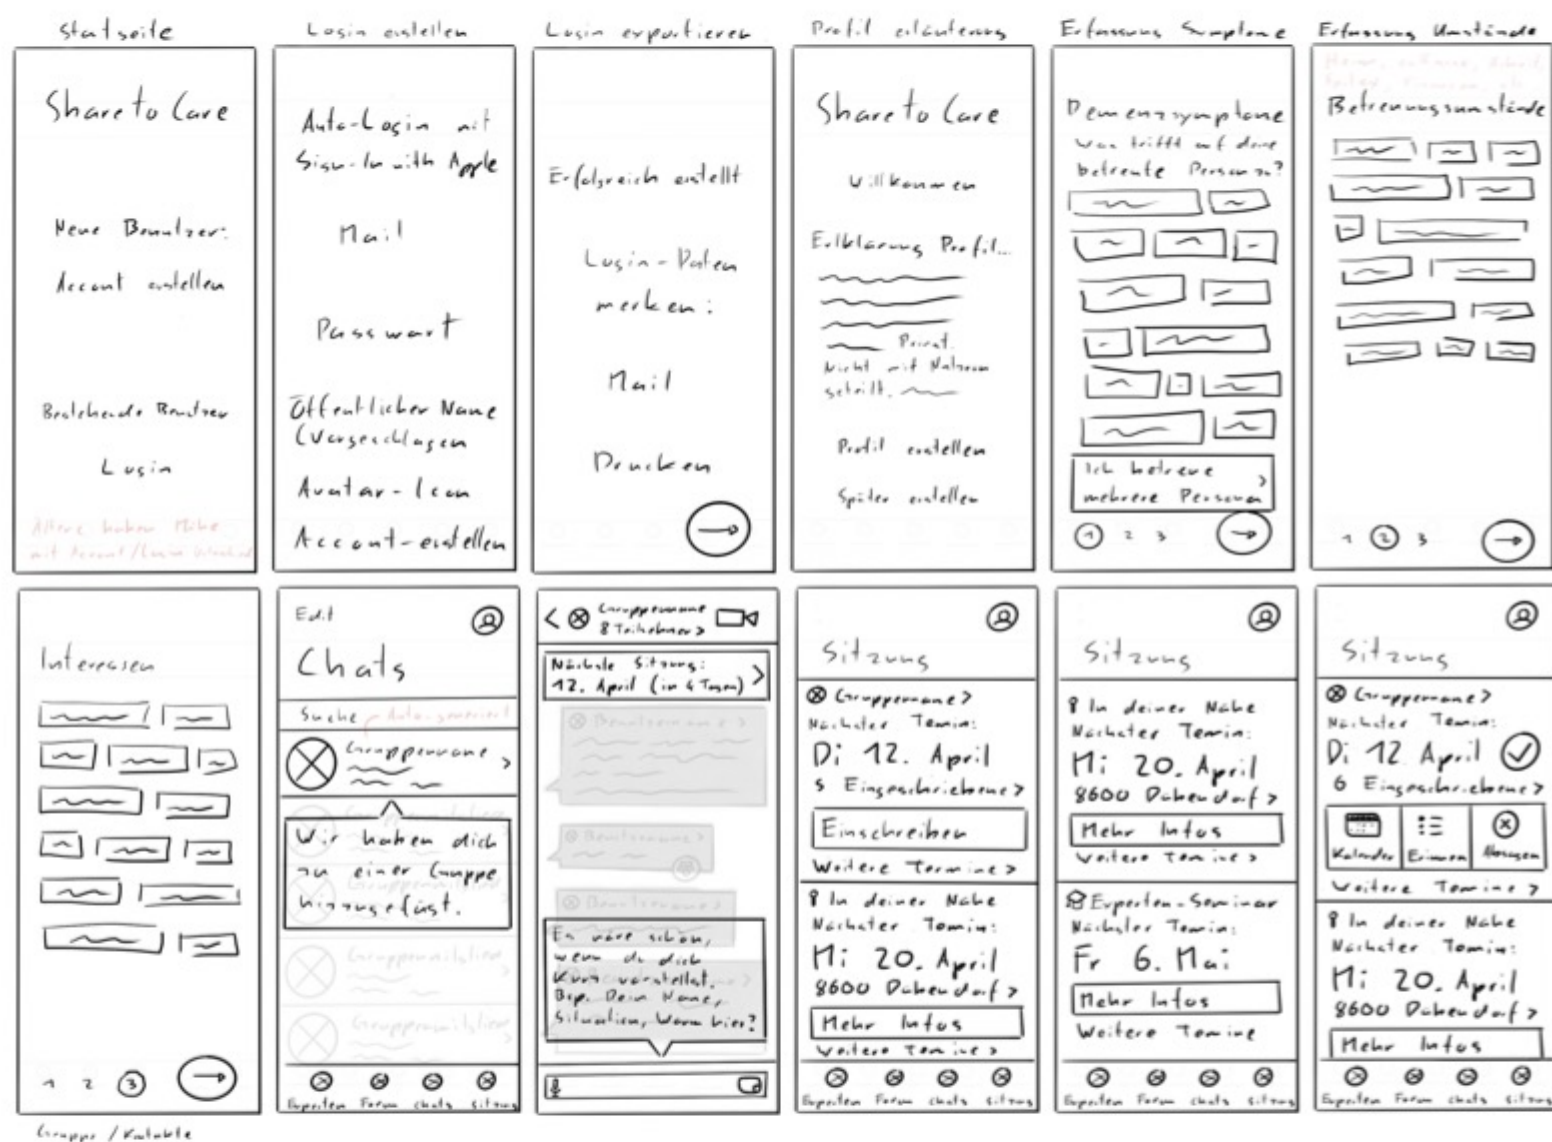 Startseite
Share to Care
Neue Benutzer:
Account erstellen
Bestehende Benutzer
Login
Ältere haben Mühe
mit Account/Login
Login erstellen
Auto-Login mit
Sign-In with Apple
Mail
Passwort
Öffentlicher Name
(Vorgeschlagen
Avatar-Icon
Account-erstellen
Login exportieren
Erfolgreich erstellt
Login-Daten
merken:
Mail
Drucken
Profil erläuterung
Share to Care
Willkommen
Erlklärung Profil...
Privat.
Nicht mit Nutzern
geteilt.
Profil erstellen
Später erstellen
Erfassung Symptome
Demenzsymptome
Was trifft auf deine
betreute Person zu?
Ich betreue
mehrere Personen >
1 2 3
Erfassung Umstände
Betreuungsumstände
1 2 3
Interessen
1 2 3
Gruppe / Kontakte
Edit
Chats
Suche Auto-generiert
Gruppenname >
Wir haben dich
zu einer Gruppe
hinzugefügt.
Gruppenmitglied
Gruppenmitglied
Experten Forum Chats Sitzung
< Gruppenname
8 Teilnehmer >
Nächste Sitzung:
12. April (in 4 Tagen) >
Benutzername >
Benutzername >
Benutzername >
Es wäre schön,
wenn du dich
kurz vorstellst.
Bsp. Dein Name,
Situation, Warum hier?
Sitzung
Gruppenname >
Nächster Termin:
Di 12. April
5 Eingeschriebene >
Einschreiben
Weitere Termine >
In deiner Nähe
Nächster Termin:
Mi 20. April
8600 Dübendorf >
Mehr Infos
Weitere Termine >
Experten Forum Chats Sitzung
Sitzung
In deiner Nähe
Nächster Termin:
Mi 20. April
8600 Dübendorf >
Mehr Infos
Weitere Termine >
Experten-Seminar
Nächster Termin:
Fr 6. Mai
Mehr Infos
Weitere Termine
Experten Forum Chats Sitzung
Sitzung
Gruppenname >
Nächster Termin:
Di 12. April
6 Eingeschriebene >
Kalender Erinnern Absagen
Weitere Termine >
In deiner Nähe
Nächster Termin:
Mi 20. April
8600 Dübendorf >
Mehr Infos
Experten Forum Chats Sitzung